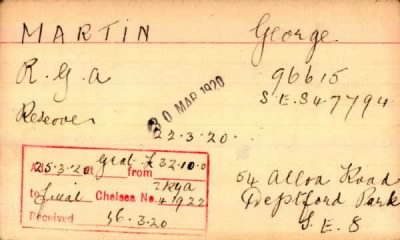 MARTIN George.
R.G.A 96615
S.E.S 47794
30 MAR 1920
Reserves
22.3.20.
Grat. £32.10.0
25.3.20 at from
to final Chelsea No. 41922
Received 26.3.20
54 Alloa Road
Deptford Park
S.E.8